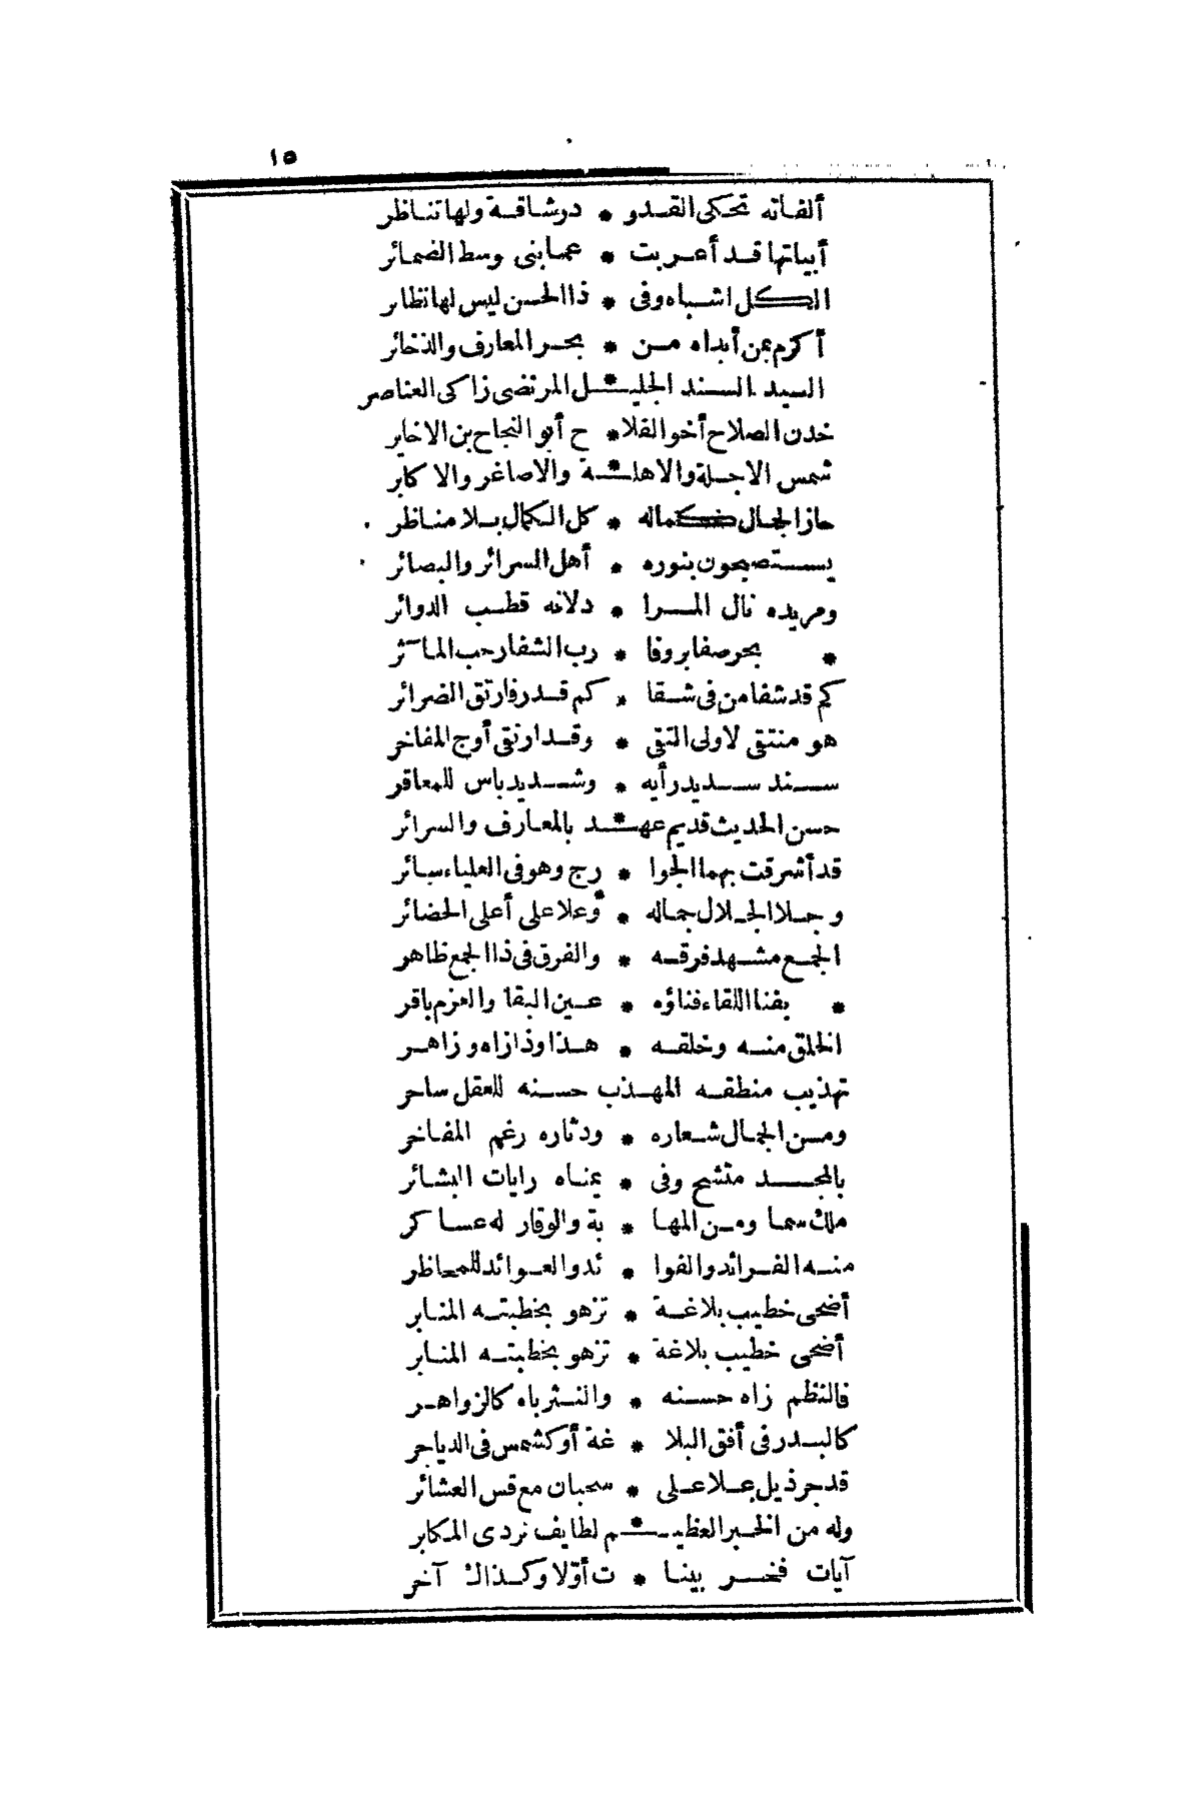 ١٥
ألفاته تحكى القدو * درشاقة ولها تناظر
أبياتها قد أعربت * عما بنى وسط الضمائر
الكل اشباه وفى * ذا الحسن ليس لها نظاير
أكرم بمن أبداه من * بحر المعارف والذخائر
السيد السند الجليـ * ـل المرتضى زاكى العناصر
خدن الصلاح أخو الفلا * ح أبو النجاح بن الاخاير
شمس الاجلة والاهلـ * ـة والاصاغر والاكابر
حاز الجمال ككماله * كل الكمال بلا مناظر
يستصبحون بنوره * أهل السرائر والبصائر
ومريده نال المرا * دلانه قطب الدوائر
* بحر صفا بر وفا * رب الشفا رحب المآثر
كم قد شفا من فى شقا * كم قد رفا رتق الضرائر
هو منتقى لاولى التقى * وقد ارتقى أوج المفاخر
سند سديد رأيه * وشديد باس للمعاقر
حسن الحديث قديم عهـ * ـد بالمعارف والسرائر
قد أشرقت بهما الجوا * رح وهو فى العلياء سائر
وجلا الجلال جماله * وعلا على أعلى الحضائر
الجمع مشهد فرقه * والفرق فى ذا الجمع ظاهر
* بفنا اللقاء فناؤه * عين البقا والعزم باقر
الخلق منه وخلقه * هذا وذا زاه وزاهر
تهذيب منطقه المهذب حسنه للعقل ساحر
ومن الجمال شعاره * ودثاره رغم المفاخر
بالمجد متشح وفى * يمناه رايات البشائر
ملك سما ومن المها * بة والوقار له عساكر
منه الفرائد والفوا * ئد والعوائد للمحاظر
أضحى خطيب بلاغة * تزهو بخطبته المنابر
أضحى خطيب بلاغة * تزهو بخطبته المنابر
فالنظم زاه حسنه * والنثر باه كالزواهر
كالبدر فى أفق البلا * غة أو كشمس فى الدياجر
قد جر ذيل علا على * سحبان مع قس العشائر
وله من الخبر العظيـ * ـم لطايف تردى المكابر
آيات فخر بينا * ت أوّلا وكذاك آخر